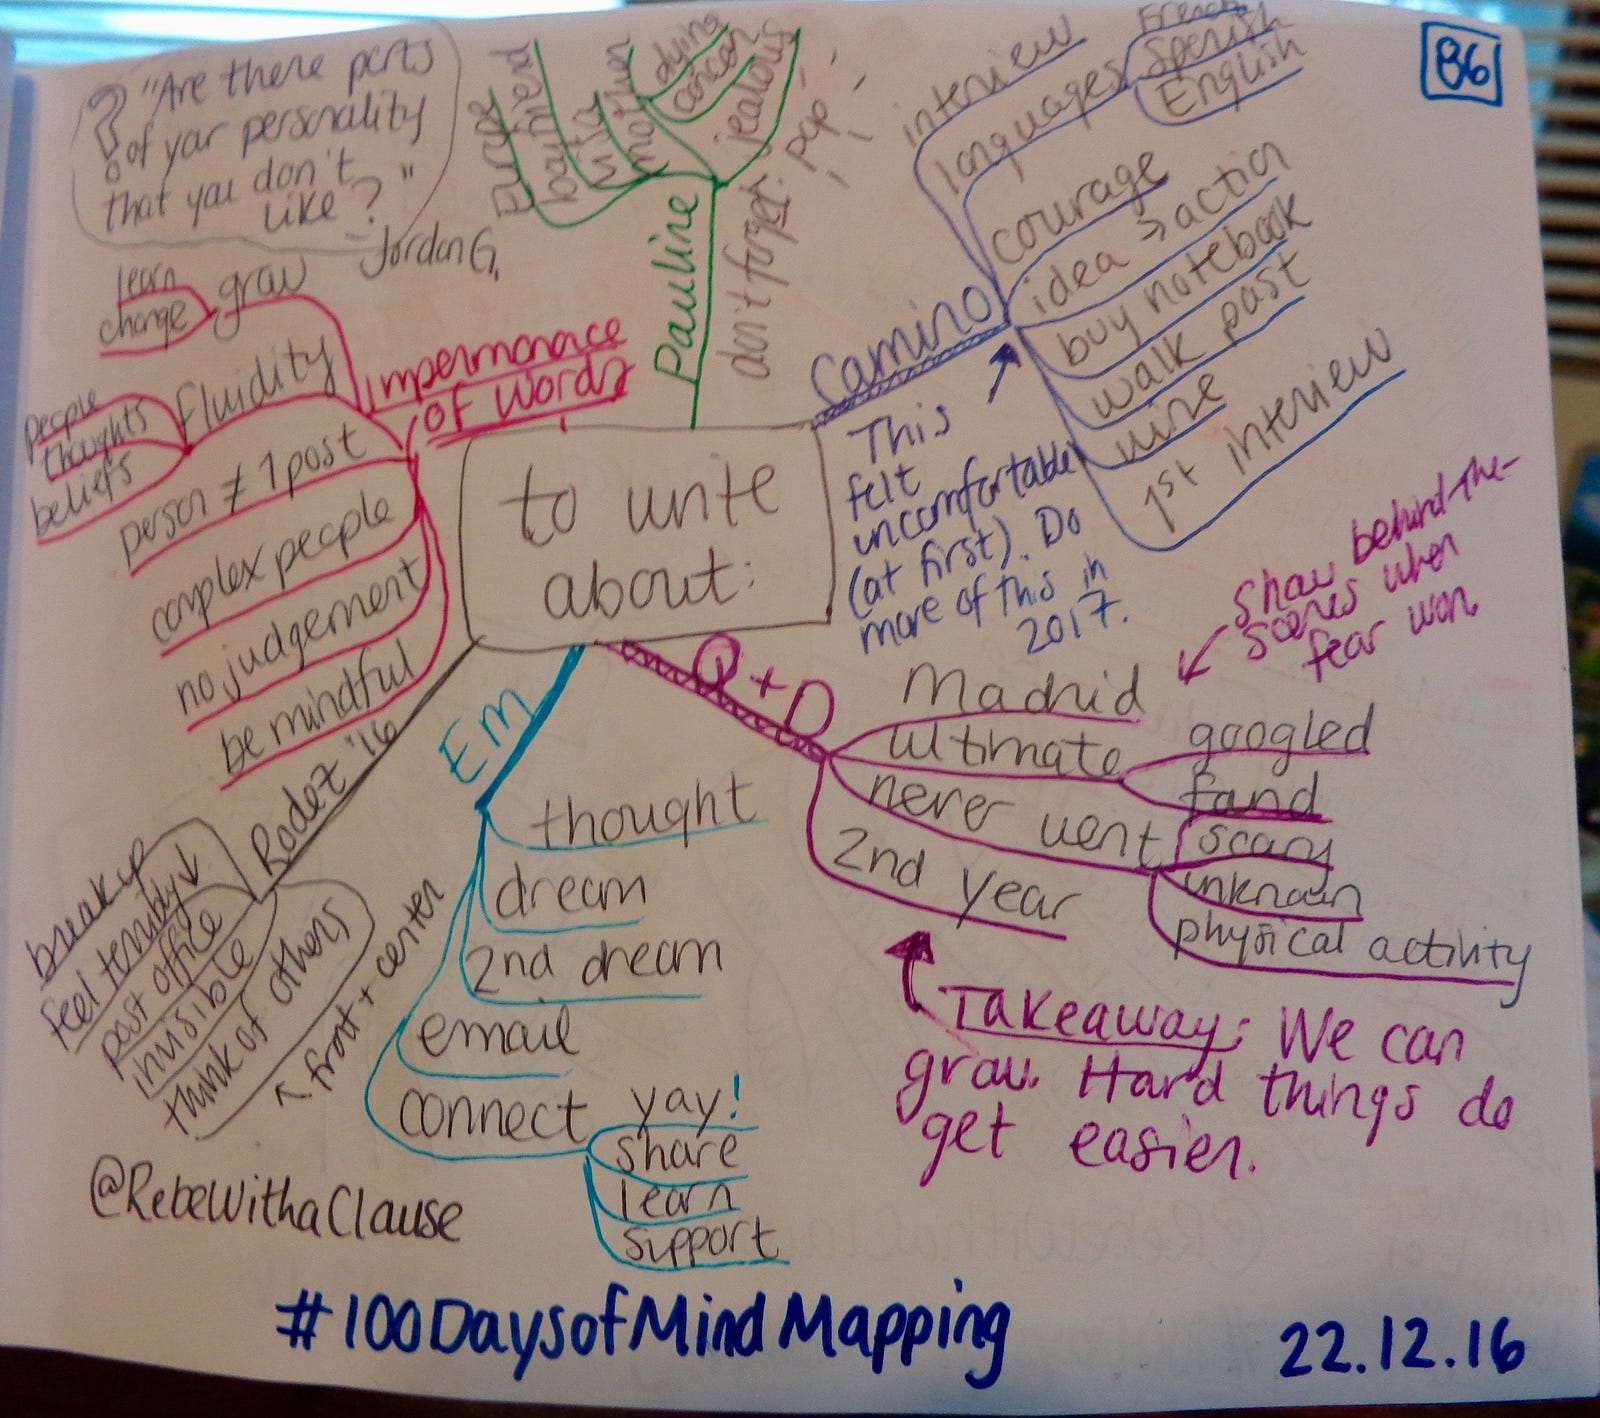 86
? "Are there parts
of your personality
that you don't
like?"
- Jordan G.
to write
about:
Pauline
Europe
loan
visa
mother
dying
cancer
jealous
don't forget: pop
Camino
interview
languages
French
Spanish
English
courage
idea → action
buy notebook
walk past
wine
1st interview
This
felt
uncomfortable
(at first). Do
more of this in
2017.
Q+D
Madrid
ultimate
googled
found
never went
scary
unknown
physical activity
2nd year
show behind-the-
scenes when
fear won
Takeaway: We can
grow. Hard things do
get easier.
Em
thought
dream
2nd dream
email
connect
yay!
share
learn
support
Rodez '16
break up
feel terribly ↓
post office
invisible
think of others
← front + center
Impermanace
of words
grow
learn
change
fluidity
people
thoughts
beliefs
person ≠ 1 post
complex people
no judgement
be mindful
@RebeWithaClause
#100DaysofMindMapping
22.12.16